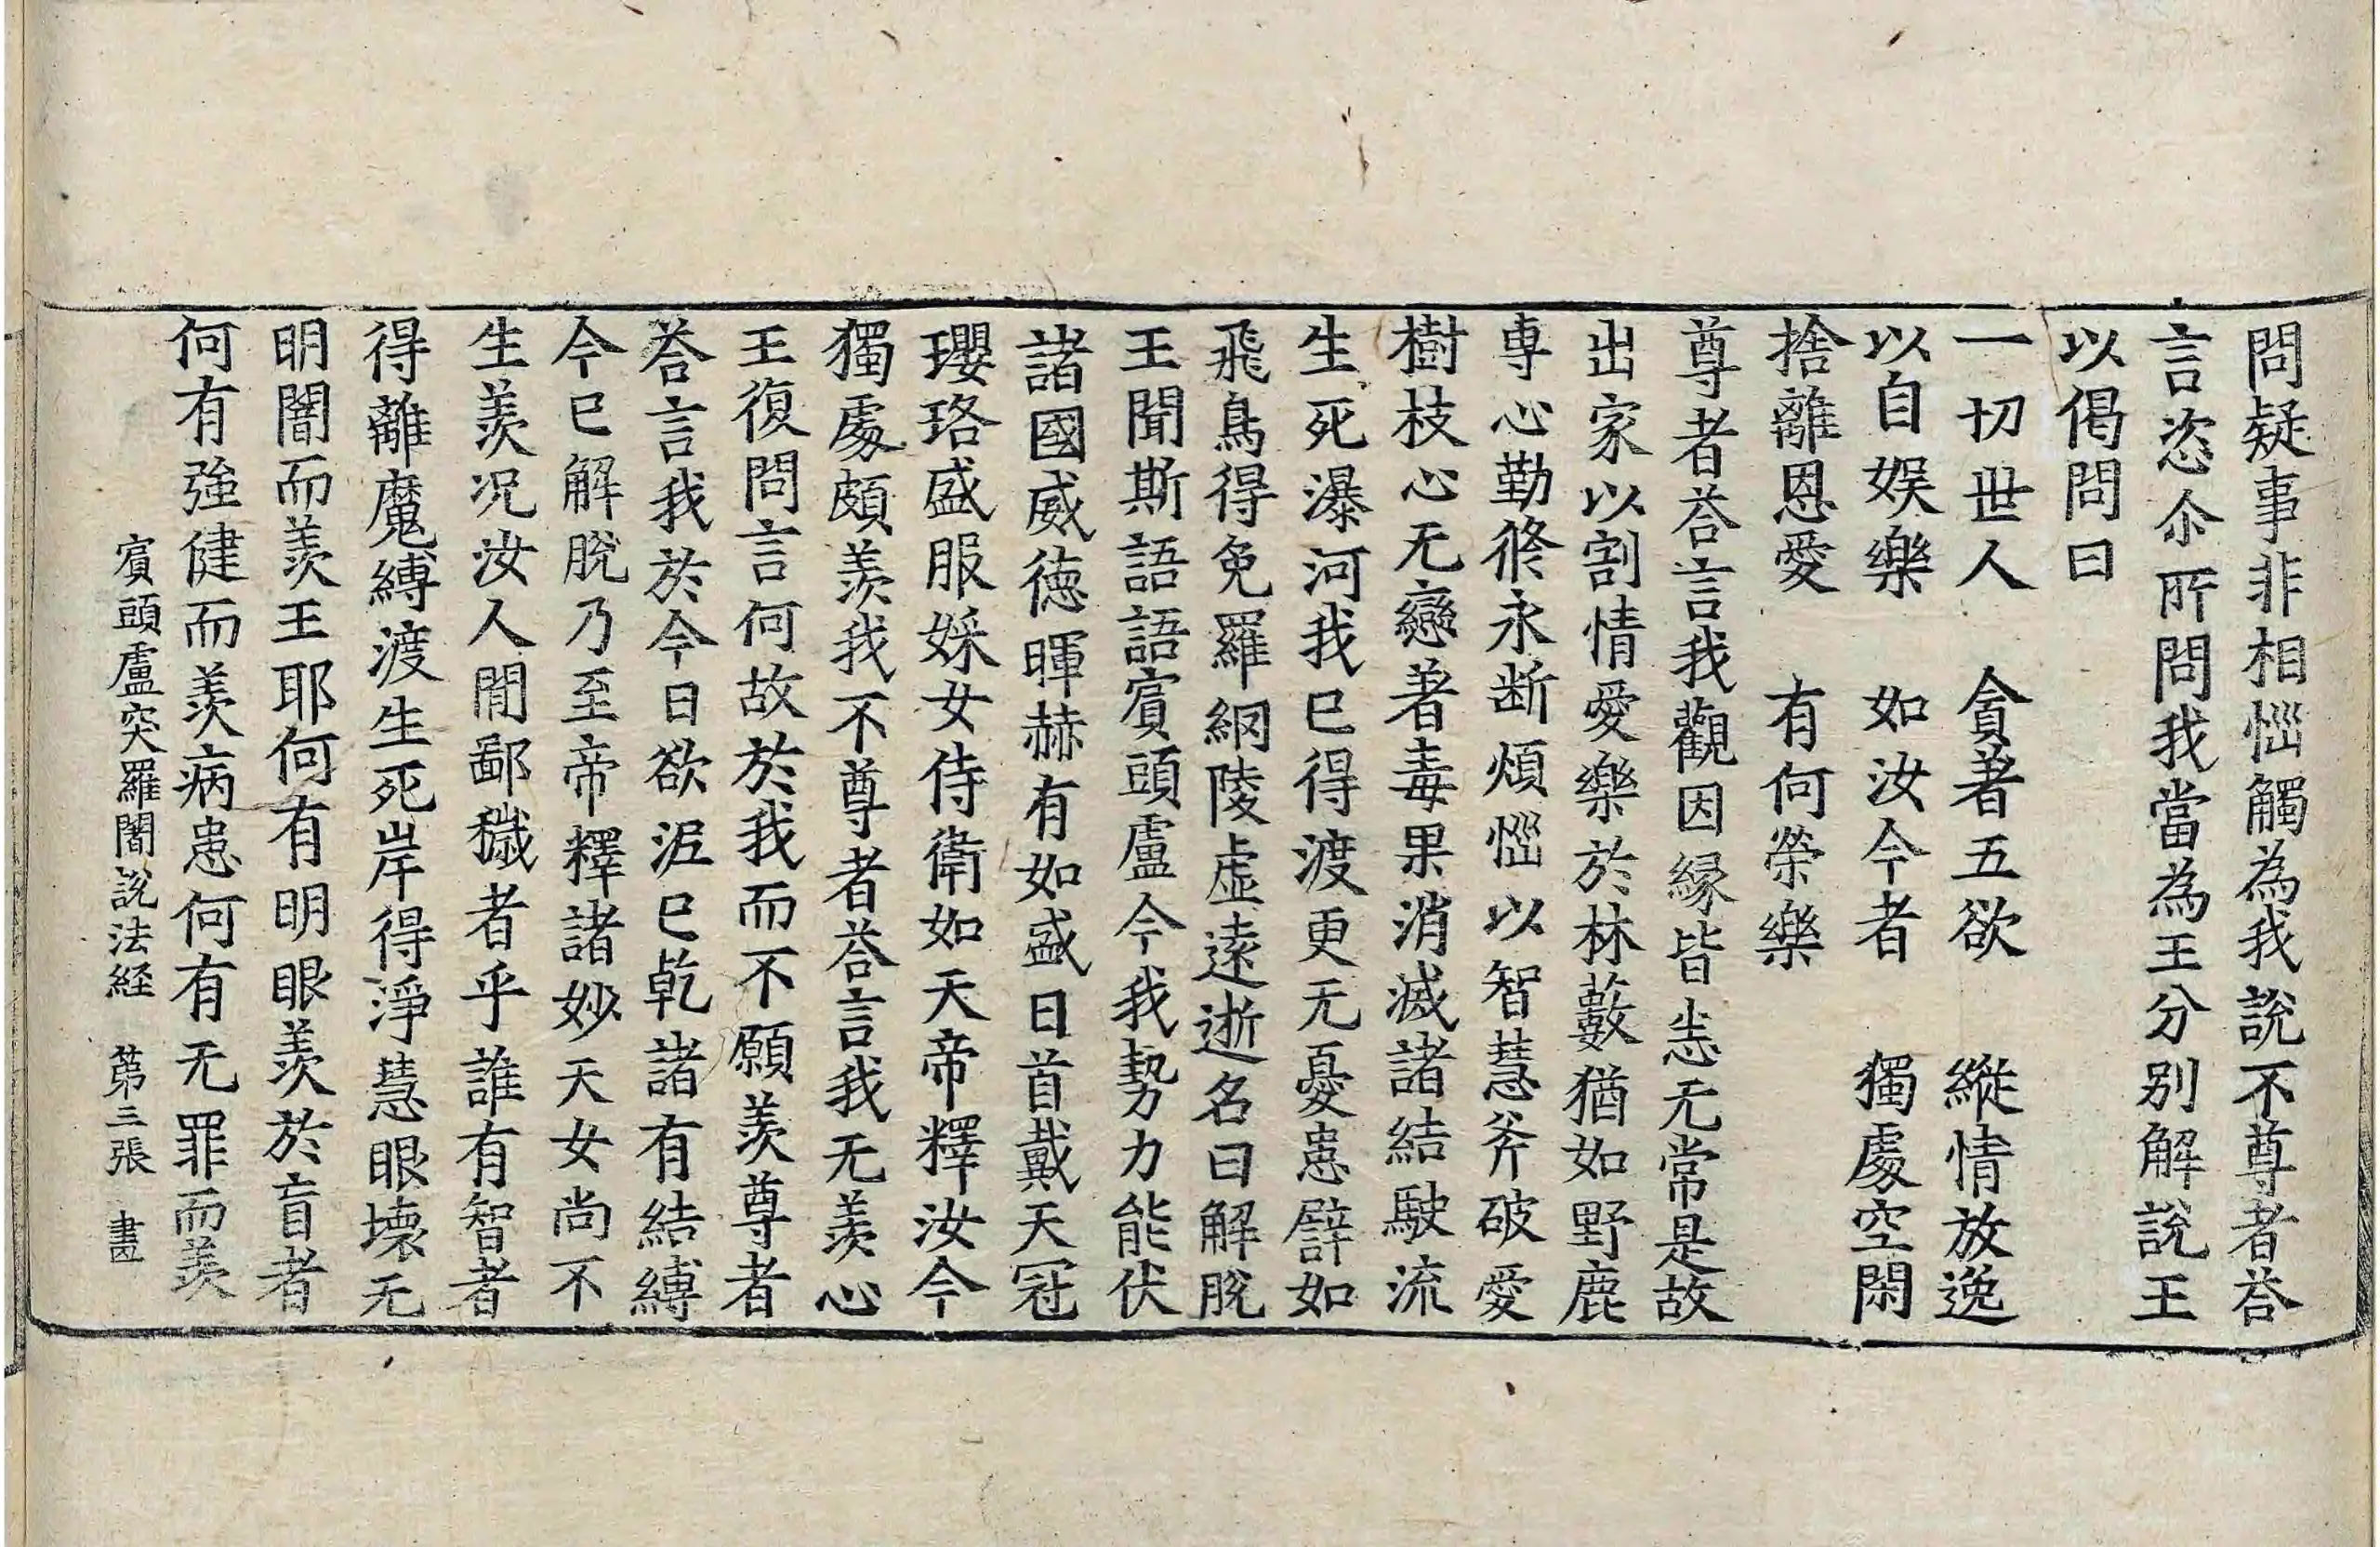 問疑事非相惱觸為我說不尊者荅
言恣尒所問我當為王分別解說王
以偈問曰
一切世人　貪著五欲　縱情放逸
以自娛樂　如汝今者　獨處空閑
捨離恩愛　有何榮樂
尊者荅言我觀因緣皆悉无常是故
出家以割情愛樂於林藪猶如野鹿
專心勤脩永断煩惱以智慧斧破愛
樹枝心无戀著毒果消滅諸結駛流
生死瀑河我已得渡更无憂患譬如
飛鳥得免羅網陵虛遠逝名曰解脫
王聞斯語語賓頭盧今我勢力能伏
諸國威德暉赫有如盛日首戴天冠
瓔珞盛服婇女侍衛如天帝釋汝今
獨處頗羨我不尊者荅言我无羨心
王復問言何故於我而不願羨尊者
荅言我於今日欲泥已乾諸有結縛
今已解脫乃至帝釋諸妙天女尚不
生羨况汝人間鄙穢者乎誰有智者
得離魔縛渡生死岸得淨慧眼壞无
明闇而羨王耶何有明眼羨於盲者
何有強健而羨病患何有无罪而羨
賓頭盧突羅闍說法経　第三張　晝